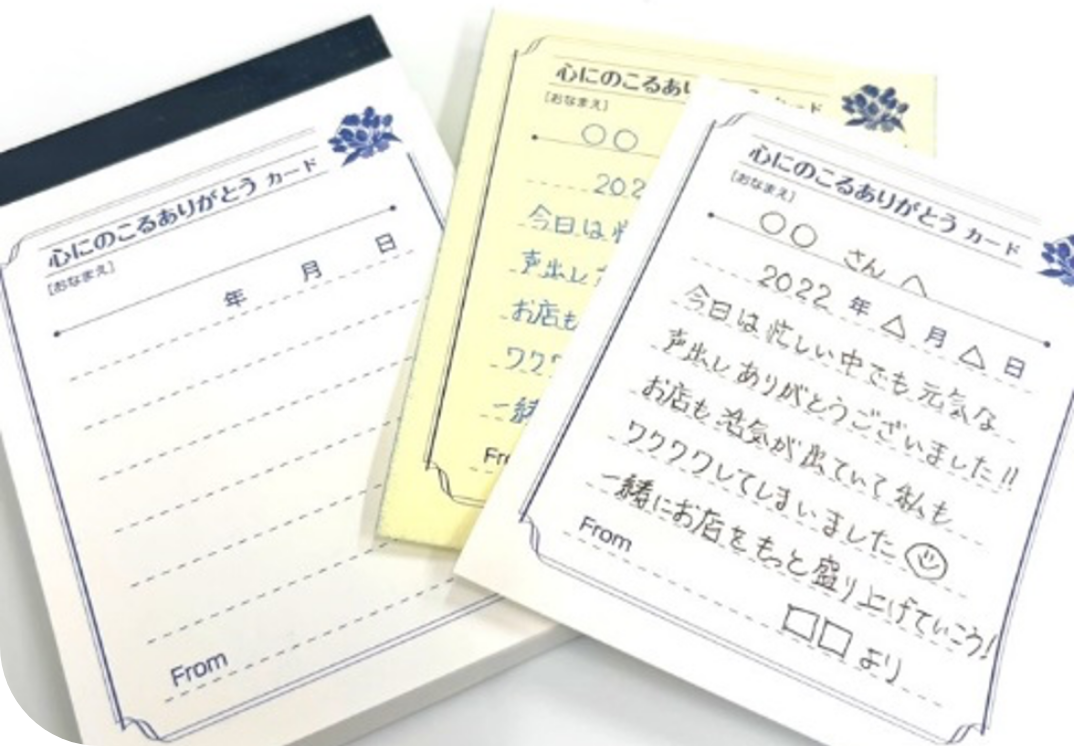 心にのこるありがとう カード
[おなまえ]
年 月 日
From
心にのこるあり
カード
[おなまえ]
○○
202
今日は忙
声出し
お店も
ワクワ
一緒
Fr
心にのこるありがとう カード
[おなまえ]
○○ さん へ
2022 年 △ 月 △ 日
今日は忙しい中でも元気な
声出しありがとうございました!!
お店も活気が出ていて私も
ワクワクしてしまいました
一緒にお店をもっと盛り上げていこう!
From
□□ より